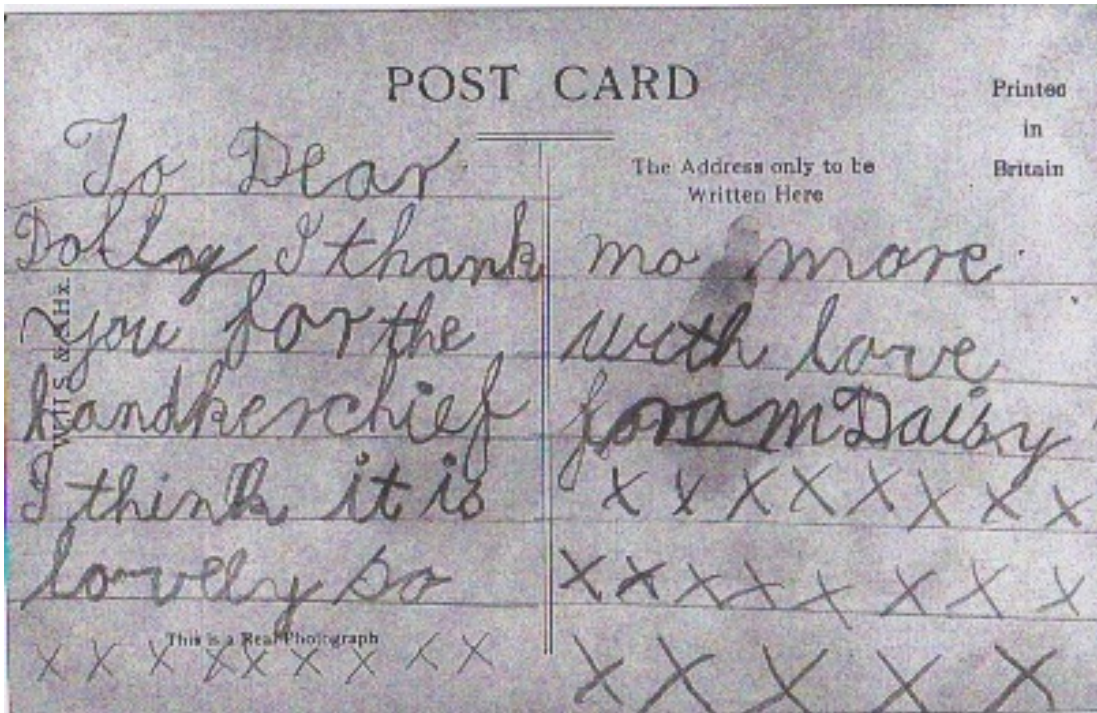 POST CARD
Printed
in
Britain
The Address only to be
Written Here
To Dear
Dolly I thank
you for the
handkerchief
I think it is
lovely so
This is a Real Photograph
x x x x x x x x x
no more
with love
from Daisy
x x x x x x x x
x x x x x x x x
x x x x x